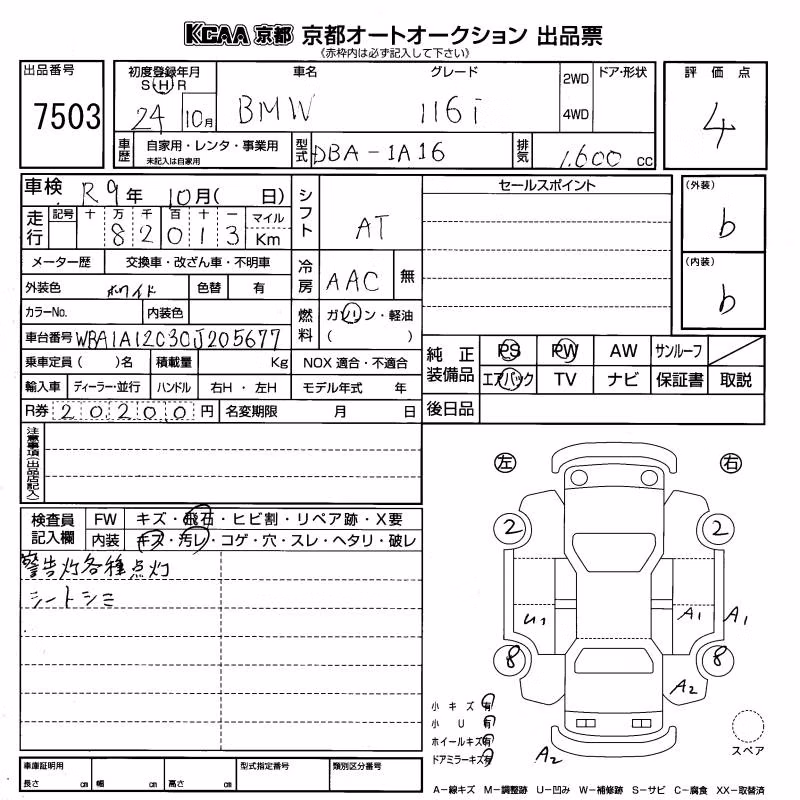 KCAA 京都 京都オートオークション 出品票
(赤枠内は必ず記入して下さい)
出品番号 初度登録年月 車名 グレード 2WD ドア・形状 評価点
7503 S・H・R 24 10月 BMW 116i 4WD 4
車歴 自家用・レンタ・事業用 未記入は自家用 型式 DBA-1A16 排気 1.600 cc
車検 R9年 10月( 日) シフト AT セールスポイント (外装) b
走行 記号 十 万 千 百 十 一 マイル
8 2 0 1 3 Km
メーター歴 交換車・改ざん車・不明車 冷房 AAC 無 (内装) b
外装色 ホワイト 色替 有
カラーNo. 内装色 燃料 ガソリン・軽油
( )
車台番号 WBA1A12C3CJ205677
純正装備品 PS PW AW サンルーフ
乗車定員( )名 積載量 Kg NOX 適合・不適合
エアバック TV ナビ 保証書 取説
輸入車 ディーラー・並行 ハンドル 右H・左H モデル年式 年
R券 20200円 名変期限 月 日 後日品
注意事項(出品店記入)
左 右
検査員記入欄 FW キズ・飛石・ヒビ割・リペア跡・X要
内装 キズ・汚レ・コゲ・穴・スレ・ヘタリ・破レ
警告灯各種点灯
シートシミ
2 2
U1 A1 A1
8 8
A2
小キズ有
小U有
ホイールキズ有
ドアミラーキズ有
A2
スペア
車庫証明用 型式指定番号 類別区分番号
長さ cm 幅 cm 高さ cm
A-線キズ M-調整跡 U-凹み W-補修跡 S-サビ C-腐食 XX-取替済